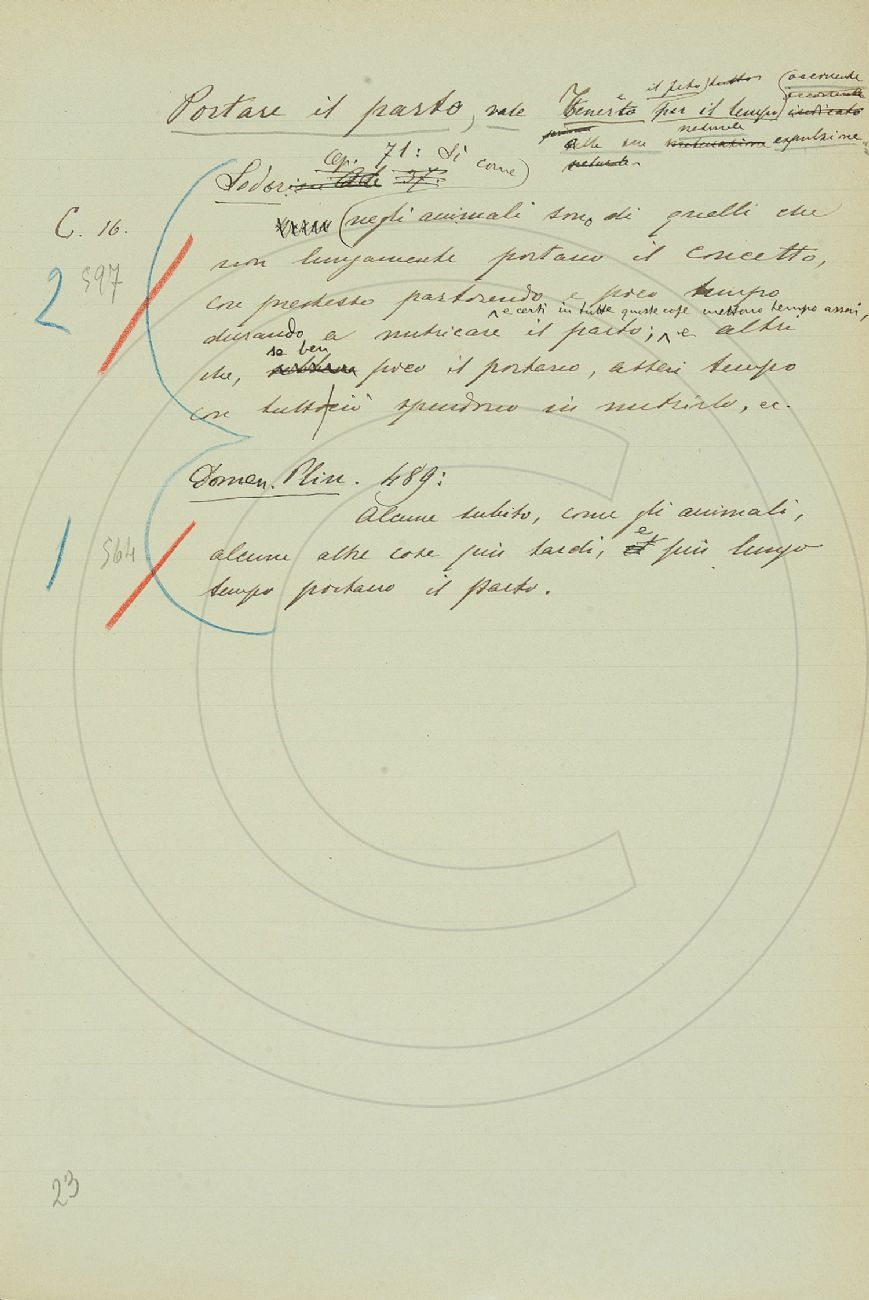 Portare il parto, vale Tenere il feto per il tempo
alla sua naturale espulsione
Cap. 71: Sì come
C. 16.
negli animali sono di quelli che
2 597
non lungamente portano il concetto,
con prestezza partorendo e poco tempo
e certi in tutte queste cose mettono tempo assai,
durando a nutricare il parto; e altri
che, se ben poco il portano, assai tempo
con tutto ciò spendono in nutrirlo, ec.
Domen. Plin. 489:
Alcune subito, come gli animali,
1 564
alcune altre cose più tardi, e più lungo
tempo portano il parto.
23